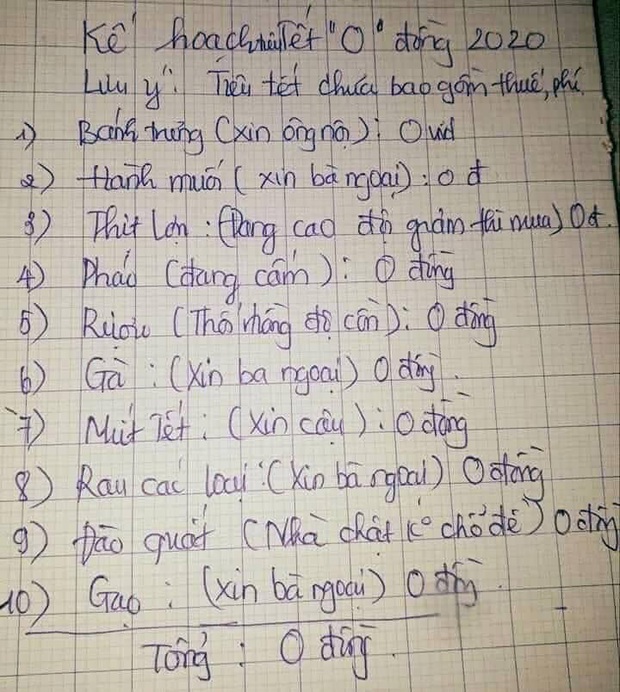 Kế hoạch tiêu Tết "0" đồng 2020
Lưu ý: Tiêu tết chưa bao gồm thuế, phí
1) Bánh trưng (xin ông nội): 0 vnđ
2) Hành muối (xin bà ngoại): 0 đ
3) Thịt Lợn: (Đang cao độ giảm thì mua) 0đ.
4) Pháo (đang cấm): 0 đồng
5) Rượu (Thổi nồng độ cồn): 0 đồng
6) Gà: (Xin bà ngoại) 0 đồng.
7) Mứt Tết: (xin cậu): 0 đồng
8) Rau các loại: (Xin bà ngoại) 0 đồng
9) Đào quất (Nhà chật ko chỗ để) 0 đồng
10) Gạo: (xin bà ngoại) 0 đồng.
Tổng: 0 đồng.